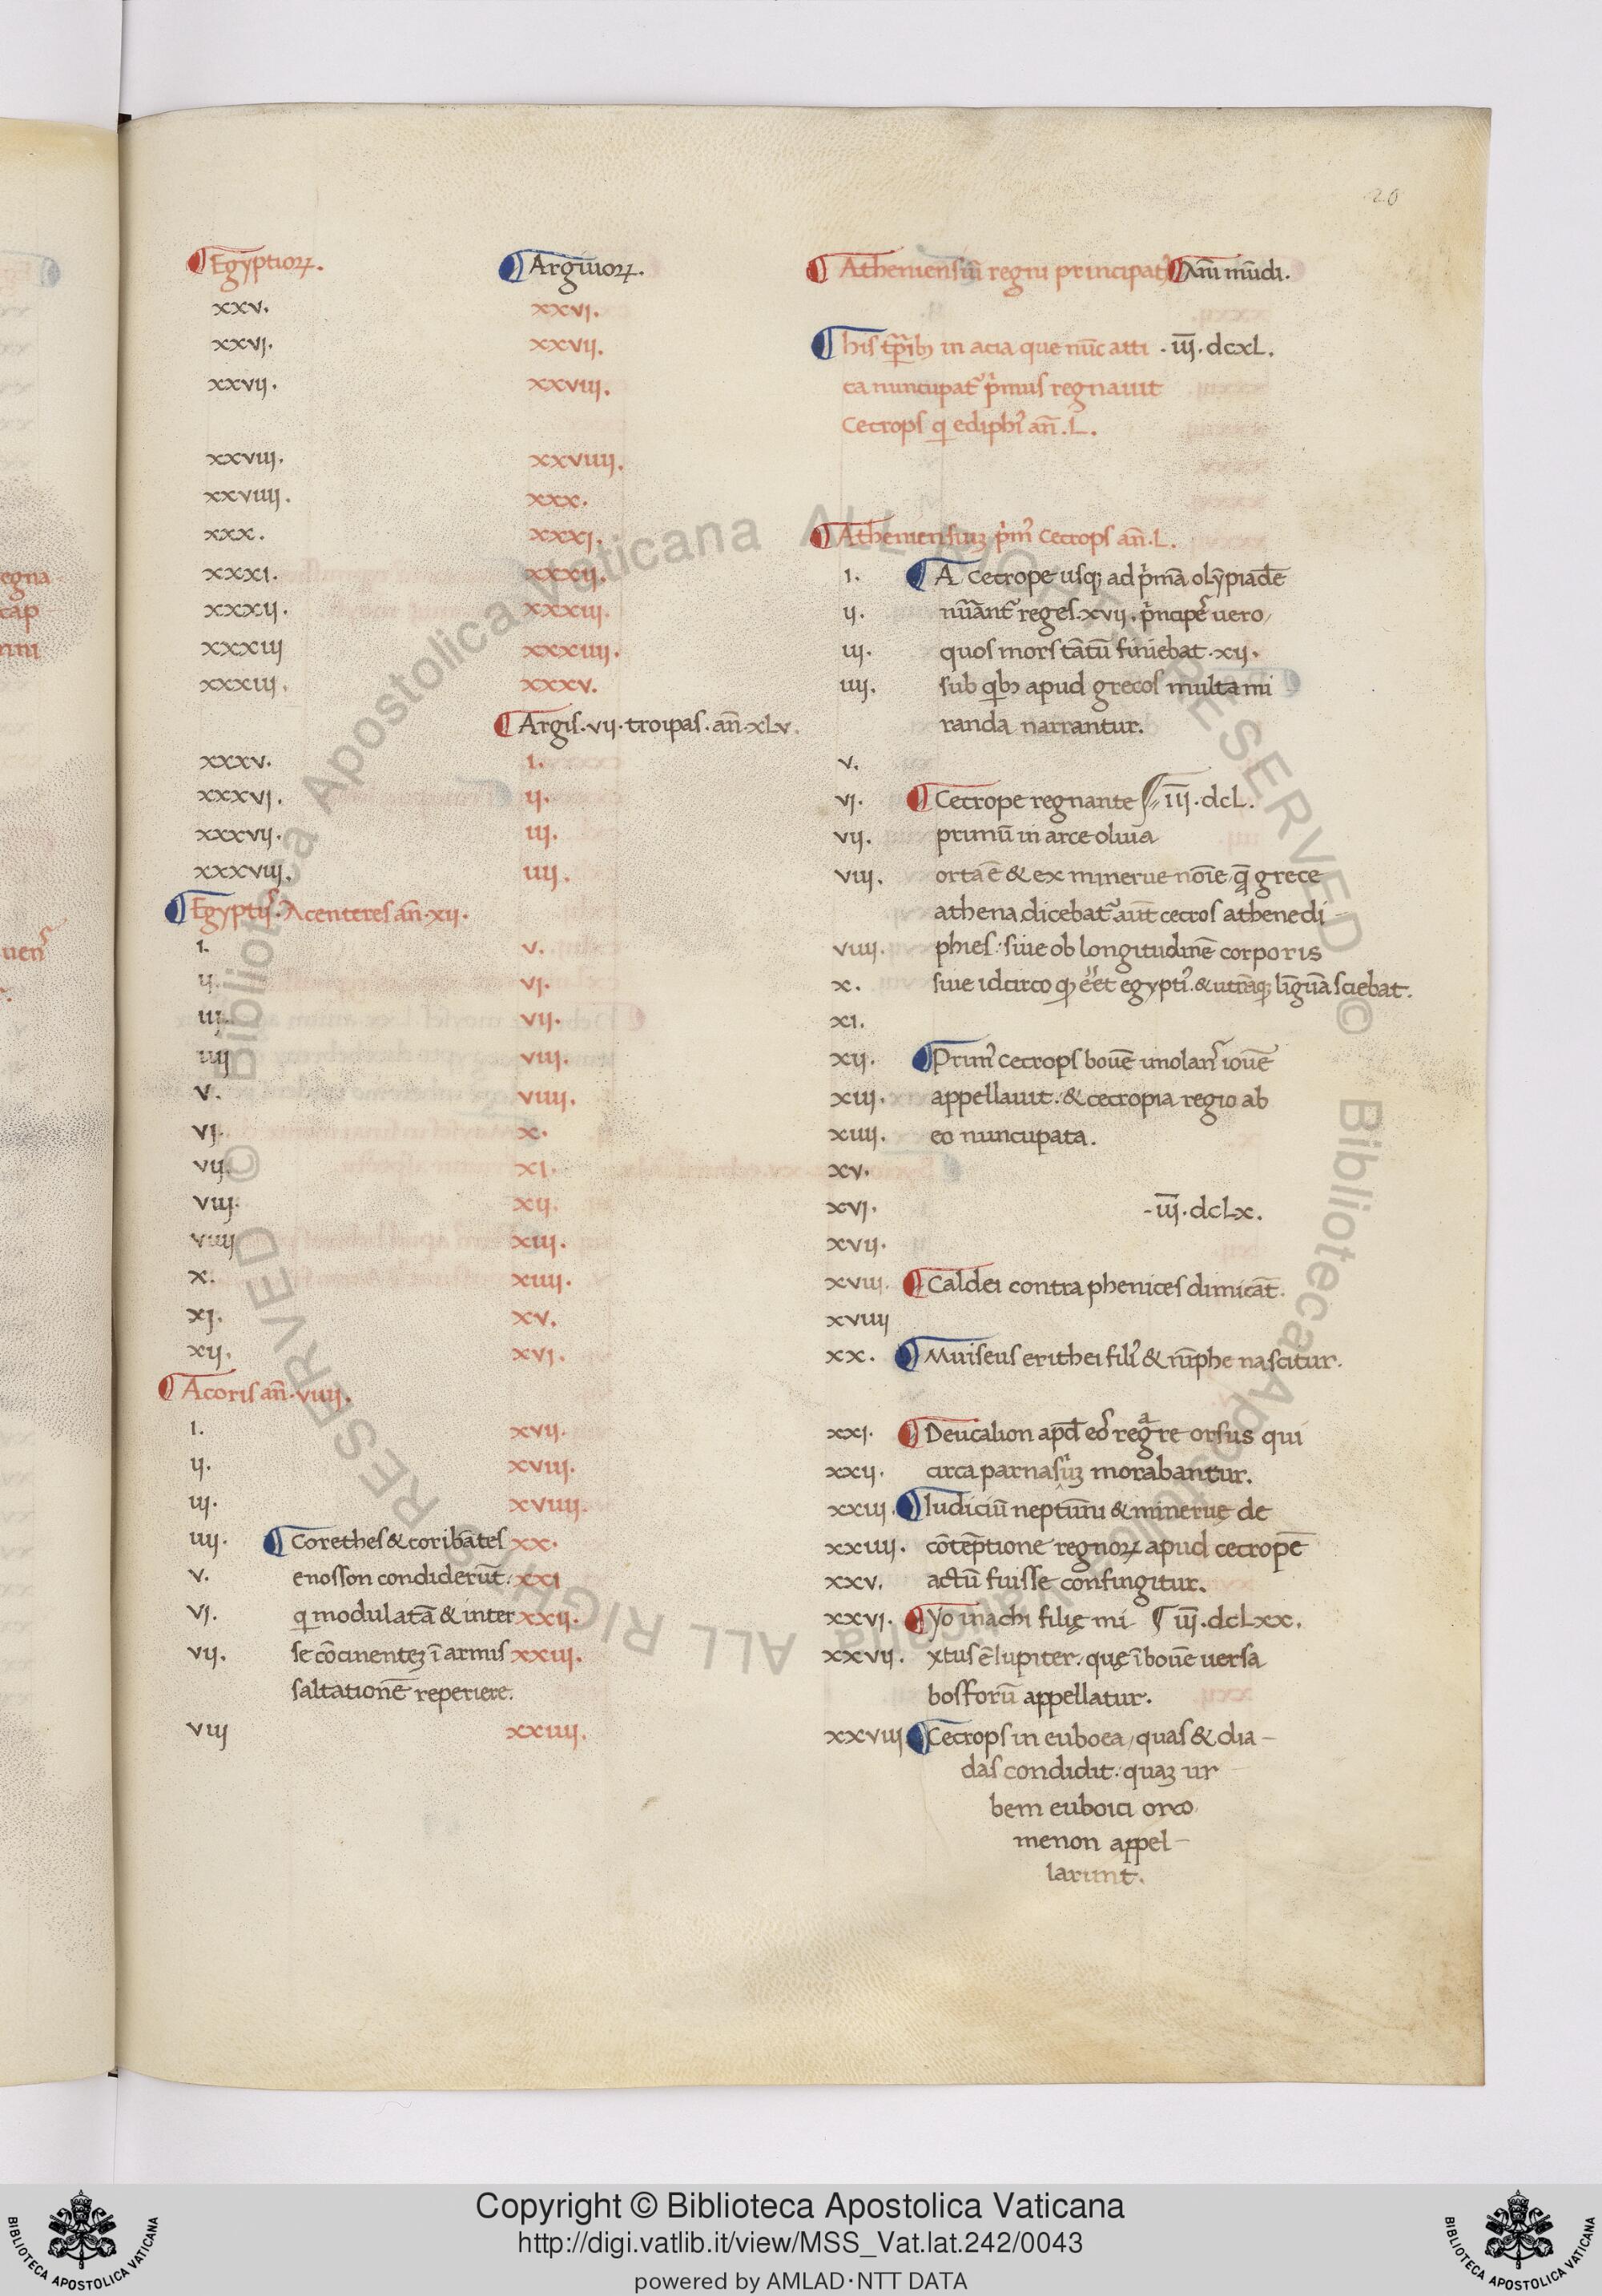 20
Egyptioꝝ. Argiuoꝝ. Atheniensiū regni principat᷒ Anī mūdi.
xxv. xxvi.
xxvi. xxvii. his tp̄rib᷒ in acia que nūc atti · iii̅. dcxL.
xxvii. xxviii. ca nuncupat᷒ p̓mus regnauit
Cecrops q edip̄h᷒ an̄. L.
xxviii. xxviiii.
xxviiii. xxx.
xxx. xxxi. Atheniensiuꝫ p̓m᷒ Cecrops an̄. L.
xxxi. xxxii. i. A Cecrope usqꝫ ad p̓mā olȳpiadē
xxxii. xxxiii. ii. nūant᷒ reges. xvii. p̓ncipes uero
xxxiii xxxiiii. iii. quos mors tātū finiebat. xii.
xxxiiii. xxxv. iiii. sub qibꝫ apud grecos multa mi
Argis. vii. troipas. an̄. xLv. randa narrantur.
xxxv. i. v.
xxxvi. ii. vi. Cecrope regnante iii̅. dcL.
xxxvii. iii. vii. primū in arce oliua
xxxviii. iiii. viii. orta ē & ex minerue noīe q̄ grece
Egyptiis. Acenteres an̄. xii. athena dicebat᷒ aut̄ cecros athene di
i. v. viiii. phies: siue ob longitudinē corporis
ii. vi. x. siue idcirco qꝫ eēt egypti᷒. & utrāqꝫ līguā sciebat.
iii. vii. xi.
iiii viii. xii. Prim᷒ cecrops bouē imolans iouē
v. viiii. xiii. appellauit. & cecropia regio ab
vi. x. xiiii. eo nuncupata.
vii. xi. xv.
viii. xii. xvi. - iii̅. dcLx.
viiii xiii. xvii.
x. xiiii. xviii. Caldei contra phenices dimicāt.
xi. xv. xviiii
xii. xvi. xx. Muiseus erithei fili᷒ & nīphe nascitur.
Acoris an̄. viiii.
i. xvii. xxi. Deucalion apd̄ eos regare orsus qui
ii. xviii. xxii. circa parnasiuꝫ morabantur.
iii. xviiii. xxiii. Iudiciū neptūni & mineruę de
iiii. Corethes & coribātes xx. xxiiii. cōtēptione regnoꝝ apud cecropē
v. enosson condiderūt. xxi xxv. actū fuisse confingitur.
vi. q modulatā & inter xxii. xxvi. Yo inachi filię mi iii̅. dcLxx.
vii. se cōcinenteꝫ ī armis xxiii. xxvii. xtus ē Iupiter. quę ī bouē uersa
saltationē reperiere. bosforū appellatur.
viii xxiiii. xxviii Cecrops in euboea, quas & dia-
das condidit. quaꝫ ur
bem euboici orco
menon appel-
larunt.
Copyright © Biblioteca Apostolica Vaticana
http://digi.vatlib.it/view/MSS_Vat.lat.242/0043
powered by AMLAD·NTT DATA
BIBLIOTECA APOSTOLICA VATICANA
BIBLIOTECA APOSTOLICA VATICANA